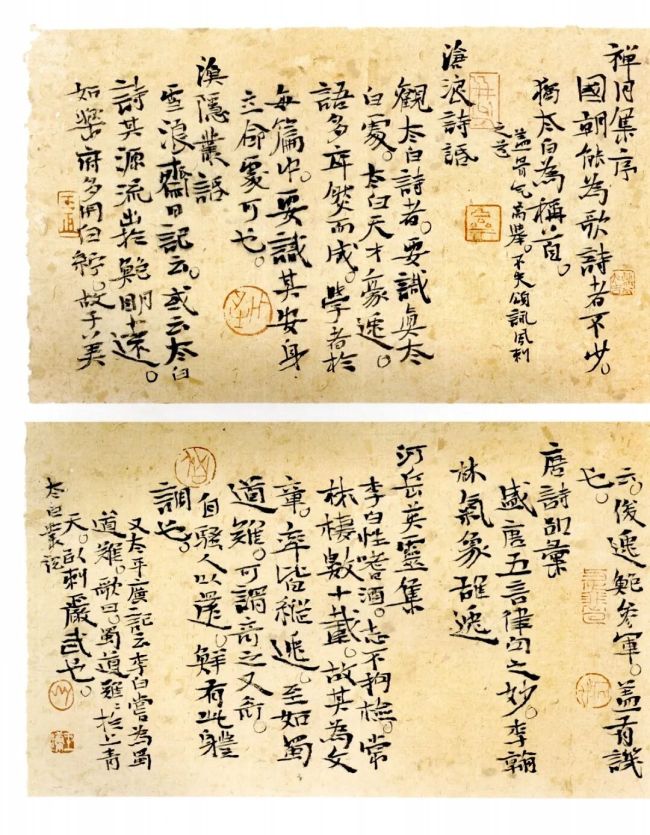 禅月集序
國朝能為歌詩者不少。
獨太白為稱首。
盖骨气高舉。不失頌詠風刺
之道
滄浪詩話
觀太白詩者。要識真太
白處。太白天才豪逸。
語多率然而成。學者於
每篇中。要識其安身
立命處可也。
漁隱叢話
雪浪齋日記云。或云太白
詩其源流出於鮑明遠。
如樂府多用白紵。故子美
云。俊逸鮑參軍。盖有譏
也。
唐詩品彙
盛唐五言律句之妙。李翰
林氣象雄逸
河岳英靈集
李白性嗜酒。志不拘檢。常
林棲數十載。故其為文
章。率皆縱逸。至如蜀
道難。可謂奇之又奇。
自騷人以還。鮮有此體
調也。
又太平廣記云李白嘗為蜀
道難。歌曰。蜀道難難於上青
天。以刺嚴武也。
太白叢記